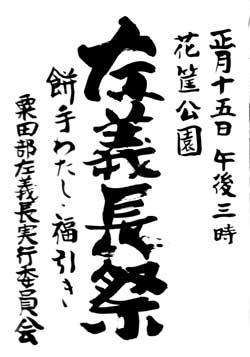 正月十五日午後三時
花筐公園
左義長祭
餅手わたし・福引き
粟田部左義長実行委員会